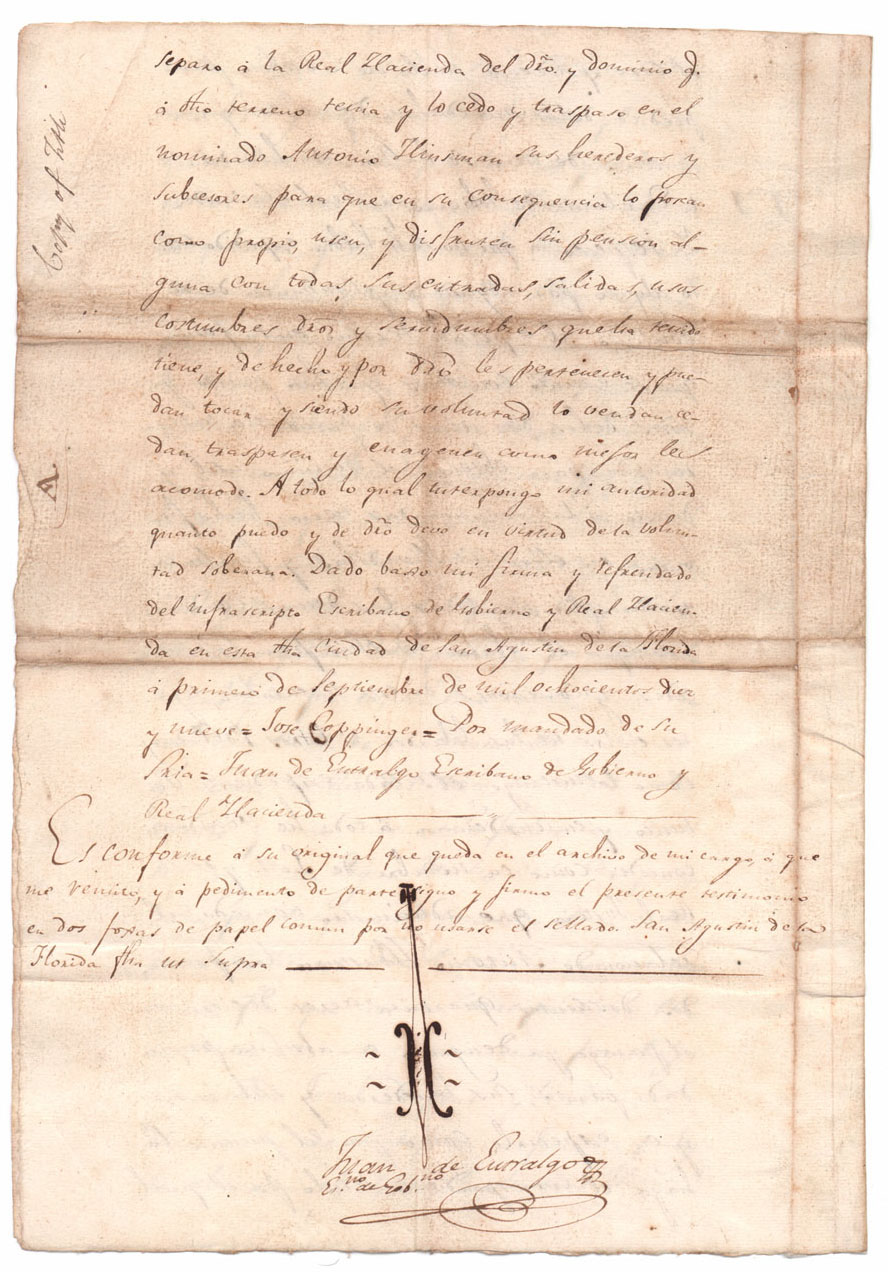 Copy of Title
A
separo á la Real Hacienda del dro. y dominio q.
á dho terreno tenia y lo cedo y traspaso en el
nominado Antonio Hinsman sus herederos y
subcesores para que en su consequencia lo posean
como propio, usen, y disfruten sin pension al-
guna con todas sus entradas, salidas, usos
costumbres dros y servidumbres que ha tenido
tiene, y de hecho y por dro les pertenecen y pue-
dan tocar y siendo su voluntad lo vendan ce-
dan, traspasen y enagenen como mejor les
acomode. A todo lo qual interpongo mi autoridad
quanto puedo y de dro devo en virtud de la volun-
tad soberana. Dado baxo mi firma y refrendado
del infrascripto Escribano de Gobierno y Real Hacien-
da en esta dha Ciudad de San Agustin de la Florida
á primero de Septiembre de mil ochocientos diez
y nueve = Jose Coppinger = Por mandado de su
Sria = Juan de Entralgo Escribano de Gobierno y
Real Hacienda
Es conforme á su original que queda en el archivo de mi cargo, á que
me remito, y á pedimento de parte signo y firmo el presente testimonio
en dos foxas de papel comun por no usarse el sellado San Agustin de la
Florida fha ut supra
Juan de Entralgo
Esno de Gobno